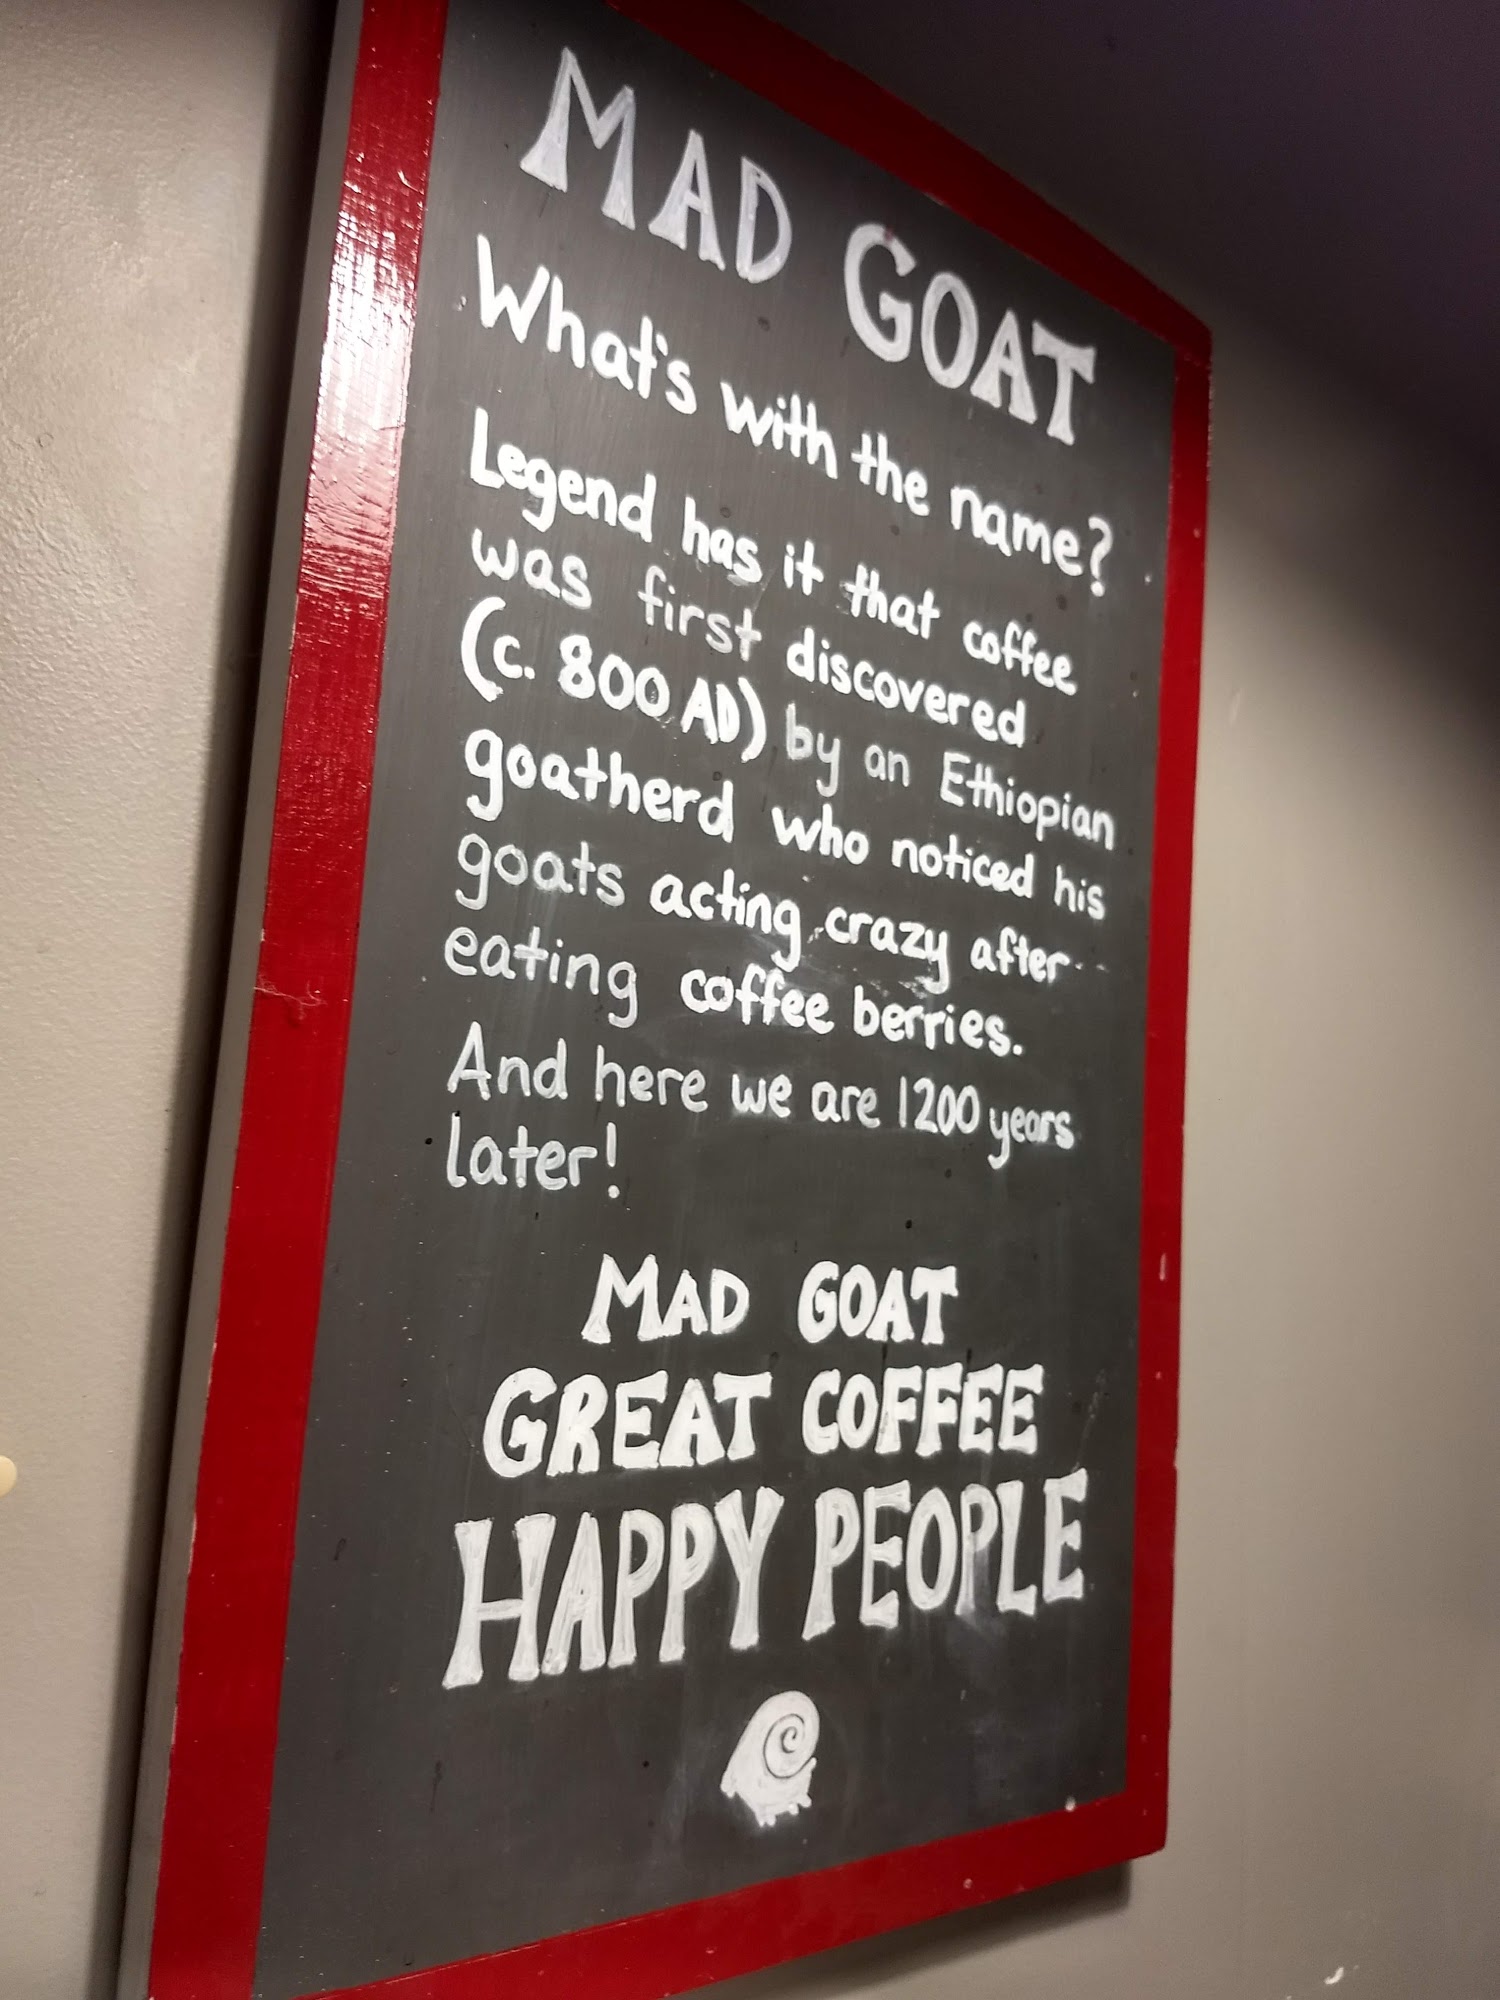 MAD GOAT
What's with the name?
Legend has it that coffee
was first discovered
(c. 800 AD) by an Ethiopian
goatherd who noticed his
goats acting crazy after
eating coffee berries.
And here we are 1200 years
later!
MAD GOAT
GREAT COFFEE
HAPPY PEOPLE